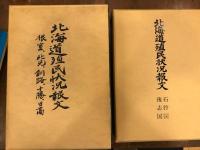 北海道殖民状況報文
根室 北見 釧路 十勝 日高
北海道殖民状況報文
石狩国
後志国